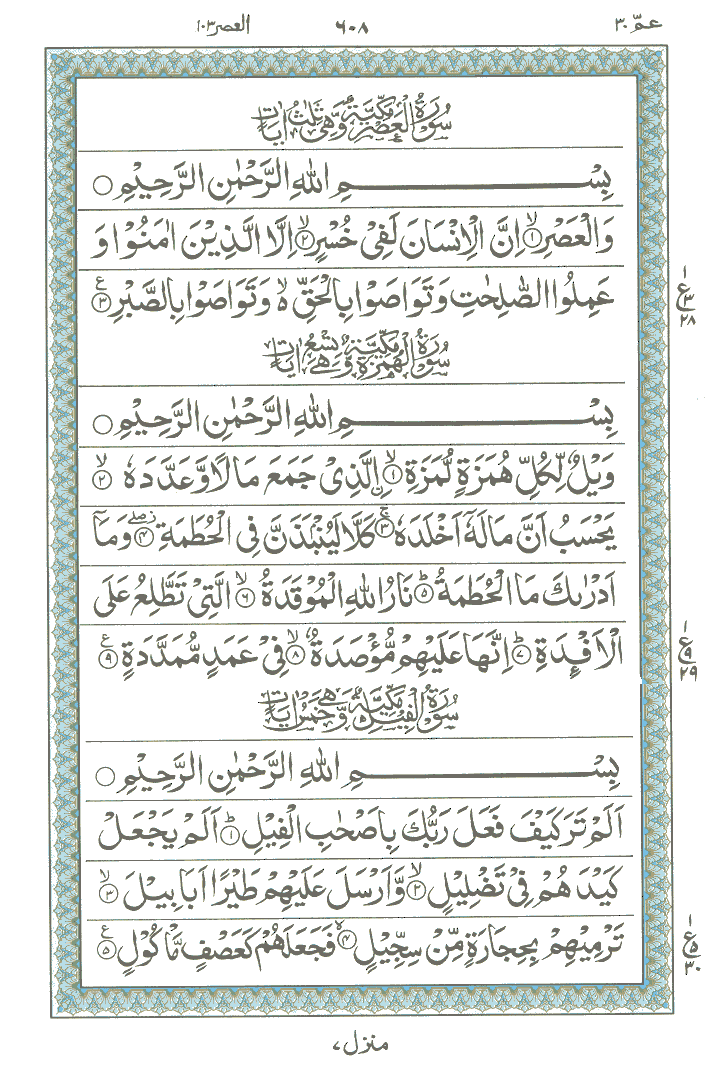 عمّ ٣٠ ٦٠٨ العصر ١٠٣
سُوْرَةُ الْعَصْرِ مَكِّيَّةٌ وَّهِيَ ثَلٰثُ اٰيَاتٍ
بِسْـــــــــمِ اللهِ الرَّحْمٰنِ الرَّحِيْمِ ○
وَالْعَصْرِ ۙ﴿۱﴾ اِنَّ الْاِنْسَانَ لَفِيْ خُسْرٍ ۙ﴿۲﴾ اِلَّا الَّذِيْنَ اٰمَنُوْا وَ
عَمِلُوا الصّٰلِحٰتِ وَتَوَاصَوْا بِالْحَقِّ ۙ۬ وَتَوَاصَوْا بِالصَّبْرِ ﴿۳﴾ ع
١ ع ٣ ٢٨
سُوْرَةُ الْهُمَزَةِ مَكِّيَّةٌ وَّهِيَ تِسْعُ اٰيَاتٍ
بِسْـــــــــمِ اللهِ الرَّحْمٰنِ الرَّحِيْمِ ○
وَيْلٌ لِّكُلِّ هُمَزَةٍ لُّمَزَةِ ۙ﴿۱﴾ ۣالَّذِيْ جَمَعَ مَالًا وَّعَدَّدَهٗ ۙ﴿۲﴾
يَحْسَبُ اَنَّ مَالَهٗۤ اَخْلَدَهٗ ۚ﴿۳﴾ كَلَّا لَيُنْۢبَذَنَّ فِي الْحُطَمَةِ ﴿۴﴾ۖ وَمَاۤ
اَدْرٰىكَ مَا الْحُطَمَةُ ؕ﴿۵﴾ نَارُ اللهِ الْمُوْقَدَةُ ۙ﴿۶﴾ الَّتِيْ تَطَّلِعُ عَلَى
الْاَفْـِٕدَةِ ؕ﴿۷﴾ اِنَّهَا عَلَيْهِمْ مُّؤْصَدَةٌ ۙ﴿۸﴾ فِيْ عَمَدٍ مُّمَدَّدَةٍ ﴿۹﴾ ع
١ ع ٩ ٢٩
سُوْرَةُ الْفِيْلِ مَكِّيَّةٌ وَّهِيَ خَمْسُ اٰيَاتٍ
بِسْـــــــــمِ اللهِ الرَّحْمٰنِ الرَّحِيْمِ ○
اَلَمْ تَرَ كَيْفَ فَعَلَ رَبُّكَ بِاَصْحٰبِ الْفِيْلِ ؕ﴿۱﴾ اَلَمْ يَجْعَلْ
كَيْدَهُمْ فِيْ تَضْلِيْلٍ ۙ﴿۲﴾ وَّاَرْسَلَ عَلَيْهِمْ طَيْرًا اَبَابِيْلَ ۙ﴿۳﴾
تَرْمِيْهِمْ بِحِجَارَةٍ مِّنْ سِجِّيْلٍ ۪ۙ﴿۴﴾ فَجَعَلَهُمْ كَعَصْفٍ مَّاْكُوْلٍ ﴿۵﴾ ع
١ ع ٥ ٣٠
منزل ٧